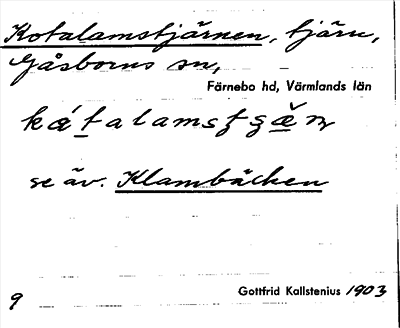 Kotalamstjärnen, tjärn,
Gåsborns sn,
Färnebo hd, Värmlands län
se äv. Klambäcken
Gottfrid Kallstenius 1903
9